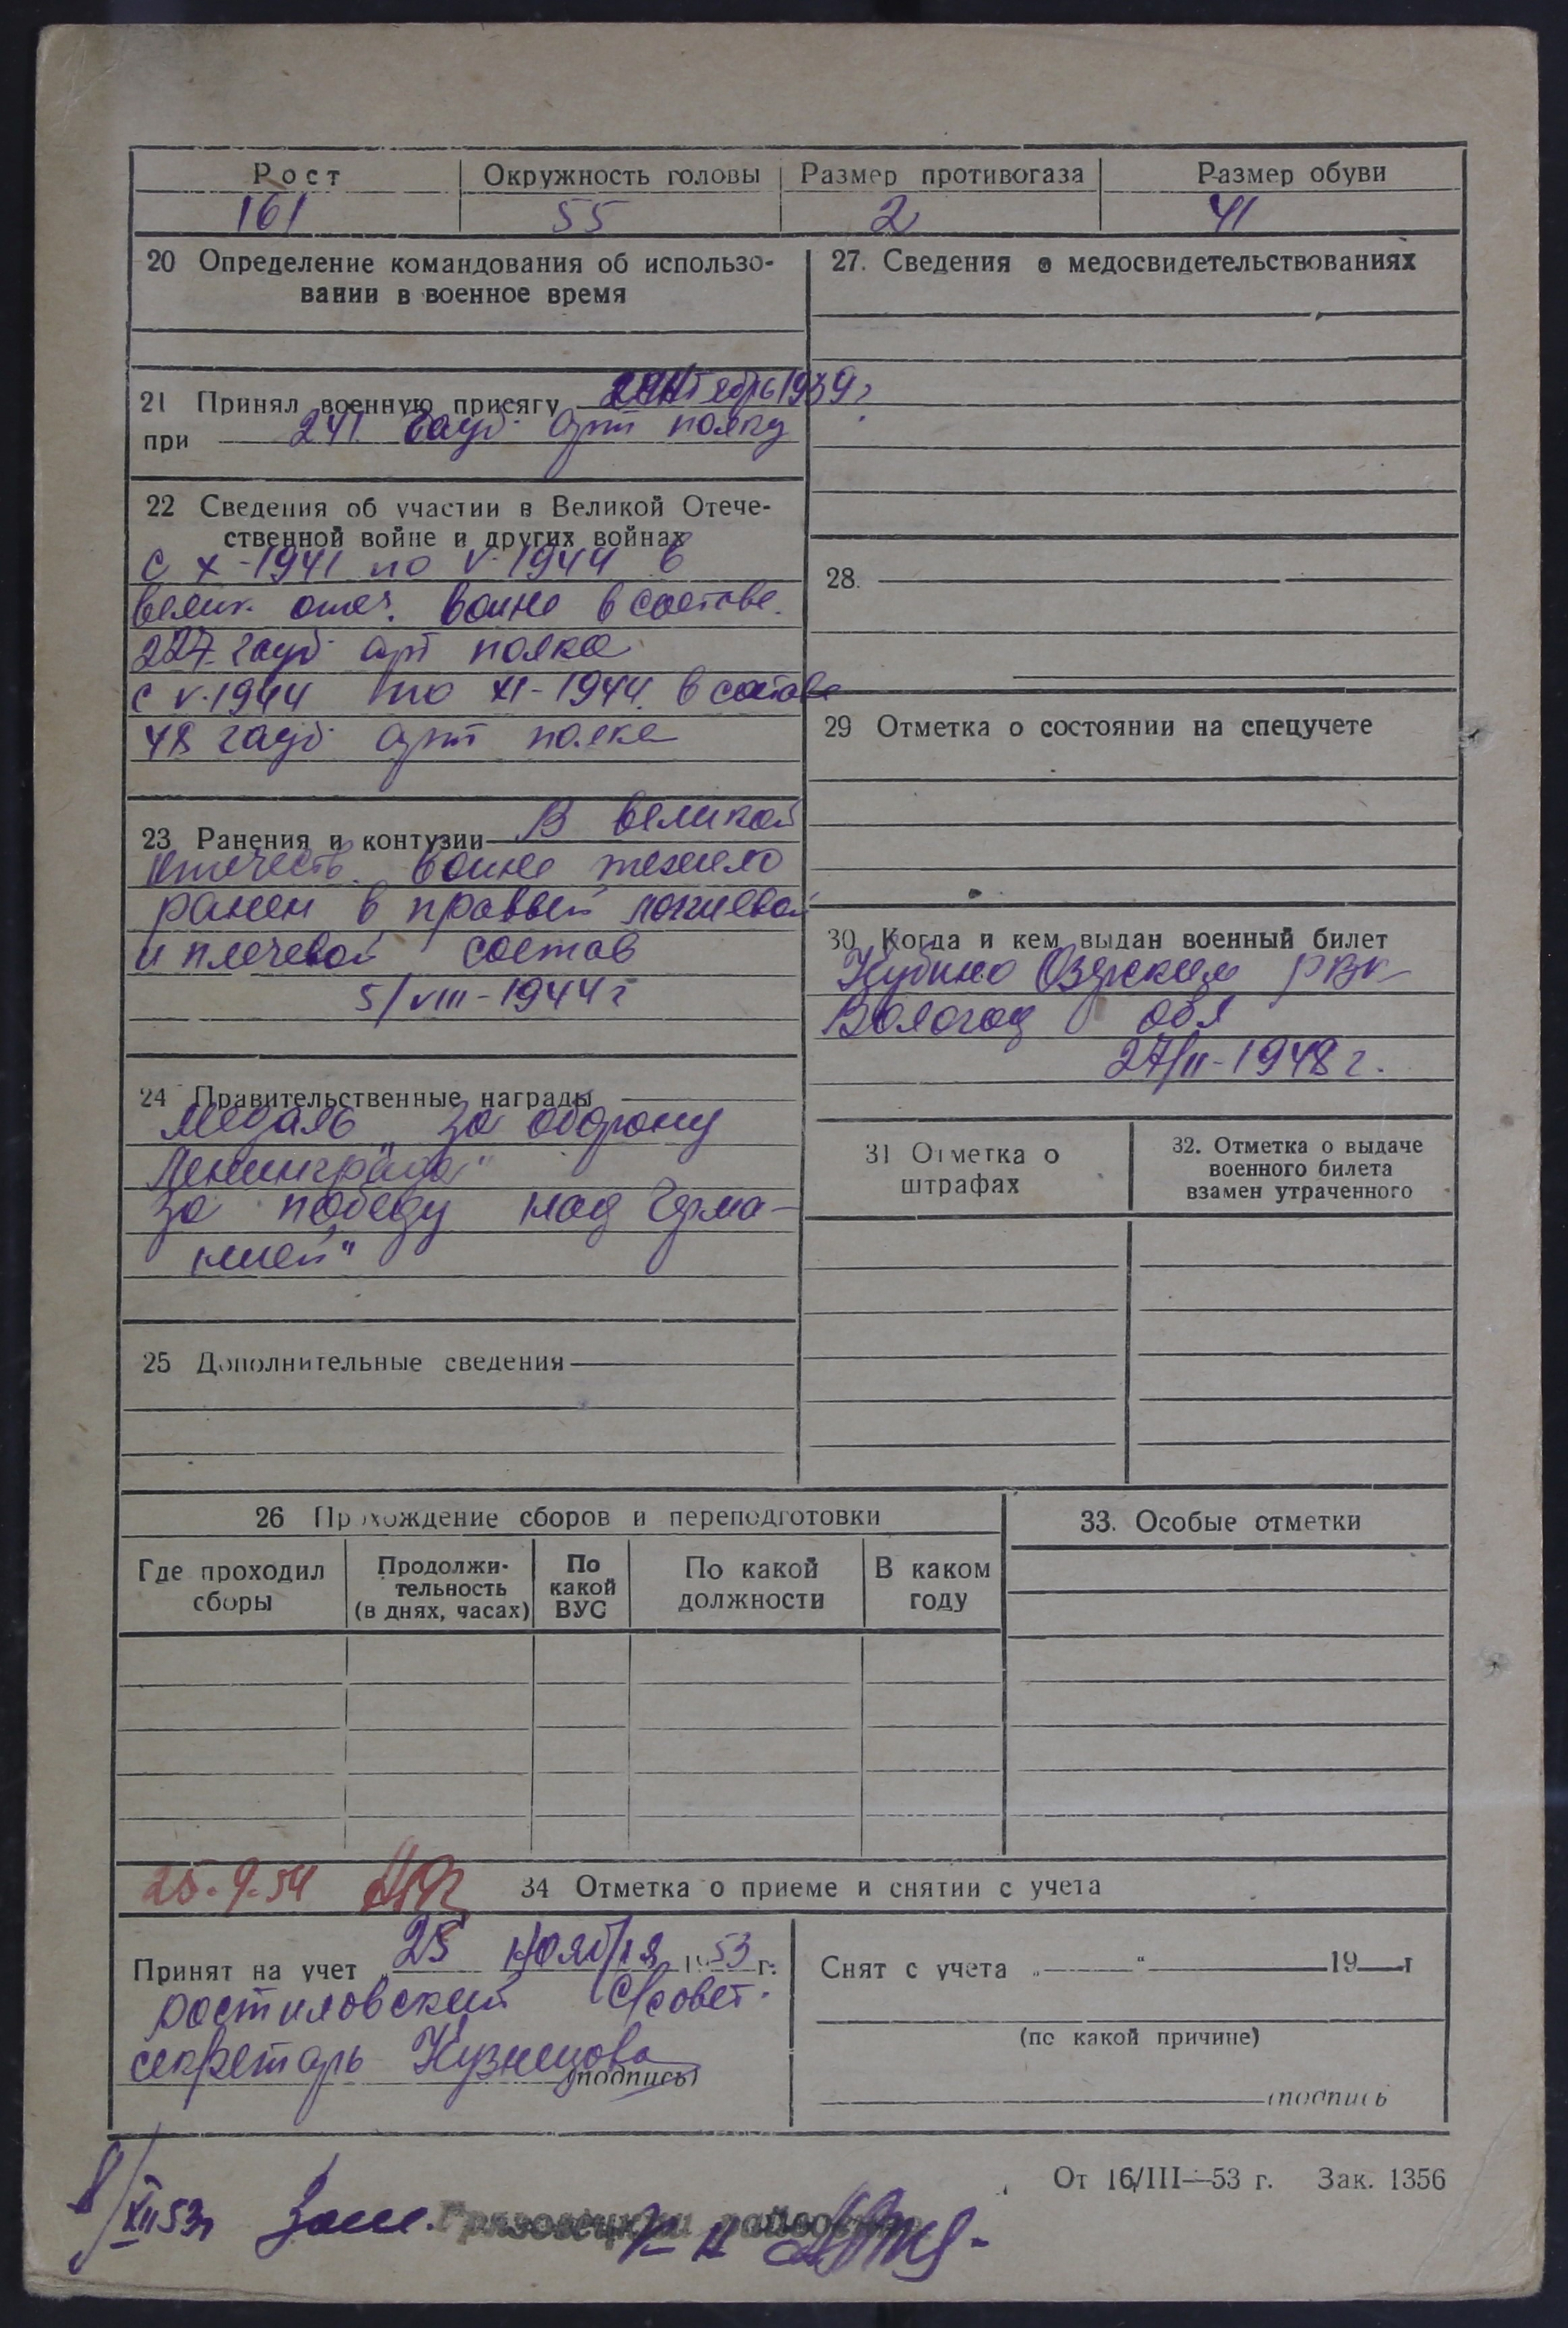 Рост Окружность головы Размер противогаза Размер обуви
161 55 2 41
20 Определение командования об использо-
вании в военное время
21 Принял военную присягу октябрь 1939 г
при 241 гауб. арт полку
22 Сведения об участии в Великой Отече-
ственной войне и других войнах
с X-1941 по V-1944 в
велик. отеч. войне в составе
227 гауб. арт полка
с V-1944 по XI-1944 в составе
48 гауб. арт полка
23 Ранения и контузии В великой
отечеств. войне тежело
ранен в правый локтевой
и плечевой состав
5/VIII-1944 г
24 Правительственные награды
Медаль „За оборону
Ленинграда"
За победу над Герма-
нией"
25 Дополнительные сведения
27. Сведения о медосвидетельствованиях
28.
29 Отметка о состоянии на спецучете
30 Когда и кем выдан военный билет
Кубино Озерским РВК
Вологод обл
27/II-1948 г.
31 Отметка о
штрафах
32. Отметка о выдаче
военного билета
взамен утраченного
26 Прохождение сборов и переподготовки
Где проходил
сборы
Продолжи-
тельность
(в днях, часах)
По
какой
ВУС
По какой
должности
В каком
году
33. Особые отметки
25.9.54
34 Отметка о приеме и снятии с учета
Принят на учет 25 ноября 1953 г.
Ростиловский С/совет.
секретарь Кузнецова
(подпись)
Снят с учета „ " 19 г
(по какой причине)
(подпись
От 16/III—53 г. Зак. 1356
8/XII 53 г Зам. Грязовецкий